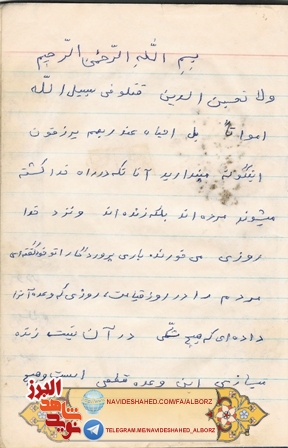 بسم الله الرحمن الرحیم
ولا تحسبن الذین قتلو فی سبیل الله
امواتاً بل احیاه عند ربهم یرزقون
اینگونه مپندارید آنانکه در راه خدا کشته
میشوند مرده اند بلکه زنده اند و نزد خدا
روزی می خورند باری پروردگارا تو خود گفته‌ای
مردم را در روز قیامت، روزی که وعده آنرا
داده‌ای که هیچ شکی در آن نیست زنده
میسازی این وعده قطعی است و هیچ
نوید شاهد البرز
NAVIDESHAHED.COM/FA/ALBORZ
TELEGRAM.ME/NAVIDESHAHED_ALBORZ